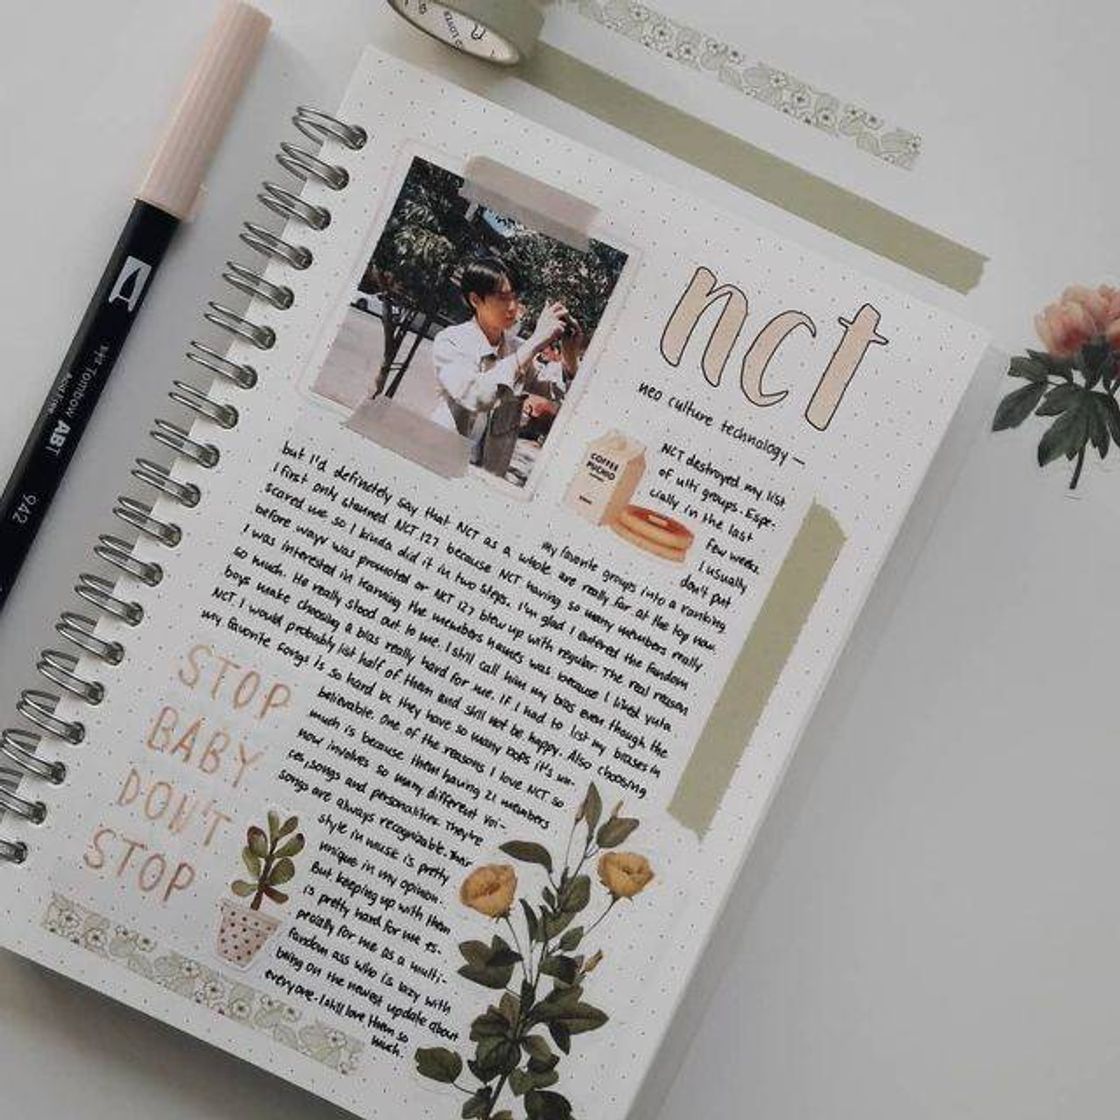 nct
neo culture technology —
NCT destroyed my list
of ulti groups. Espe-
cially in the last
few weeks.
I usually
don't put
my favorite groups into a ranking
but I'd definetely say that NCT as a whole are really far at the top now.
I first only stanned NCT 127 because NCT having so many members really
scared me so I kinda did it in two steps. I'm glad I entered the fandom
before wayv was promoted or NCT 127 blew up with regular. The real reason
I was interested in learning the members names was because I liked yuta
so much. He really stood out to me. I still call him my bias even though the
boys make choosing a bias really hard for me. If I had to list my biases in
NCT I would probably list half of them and still not be happy. Also choosing
my favorite songs is so hard bc they have so many bops it's un-
believable. One of the reasons I love NCT so
much is because them having 21 members
now involves so many different voi-
ces, songs and personalities. They're
songs are always recognizable. Their
style in music is pretty
unique in my opinion.
But keeping up with them
is pretty hard for me es-
pecially for me as a multi-
fandom ass who is lazy with
being on the newest update about
everyone. I still love them so
much.
STOP
BABY
DON'T
STOP
COFFEE
PSCHIO
942
947 Tombow ABT